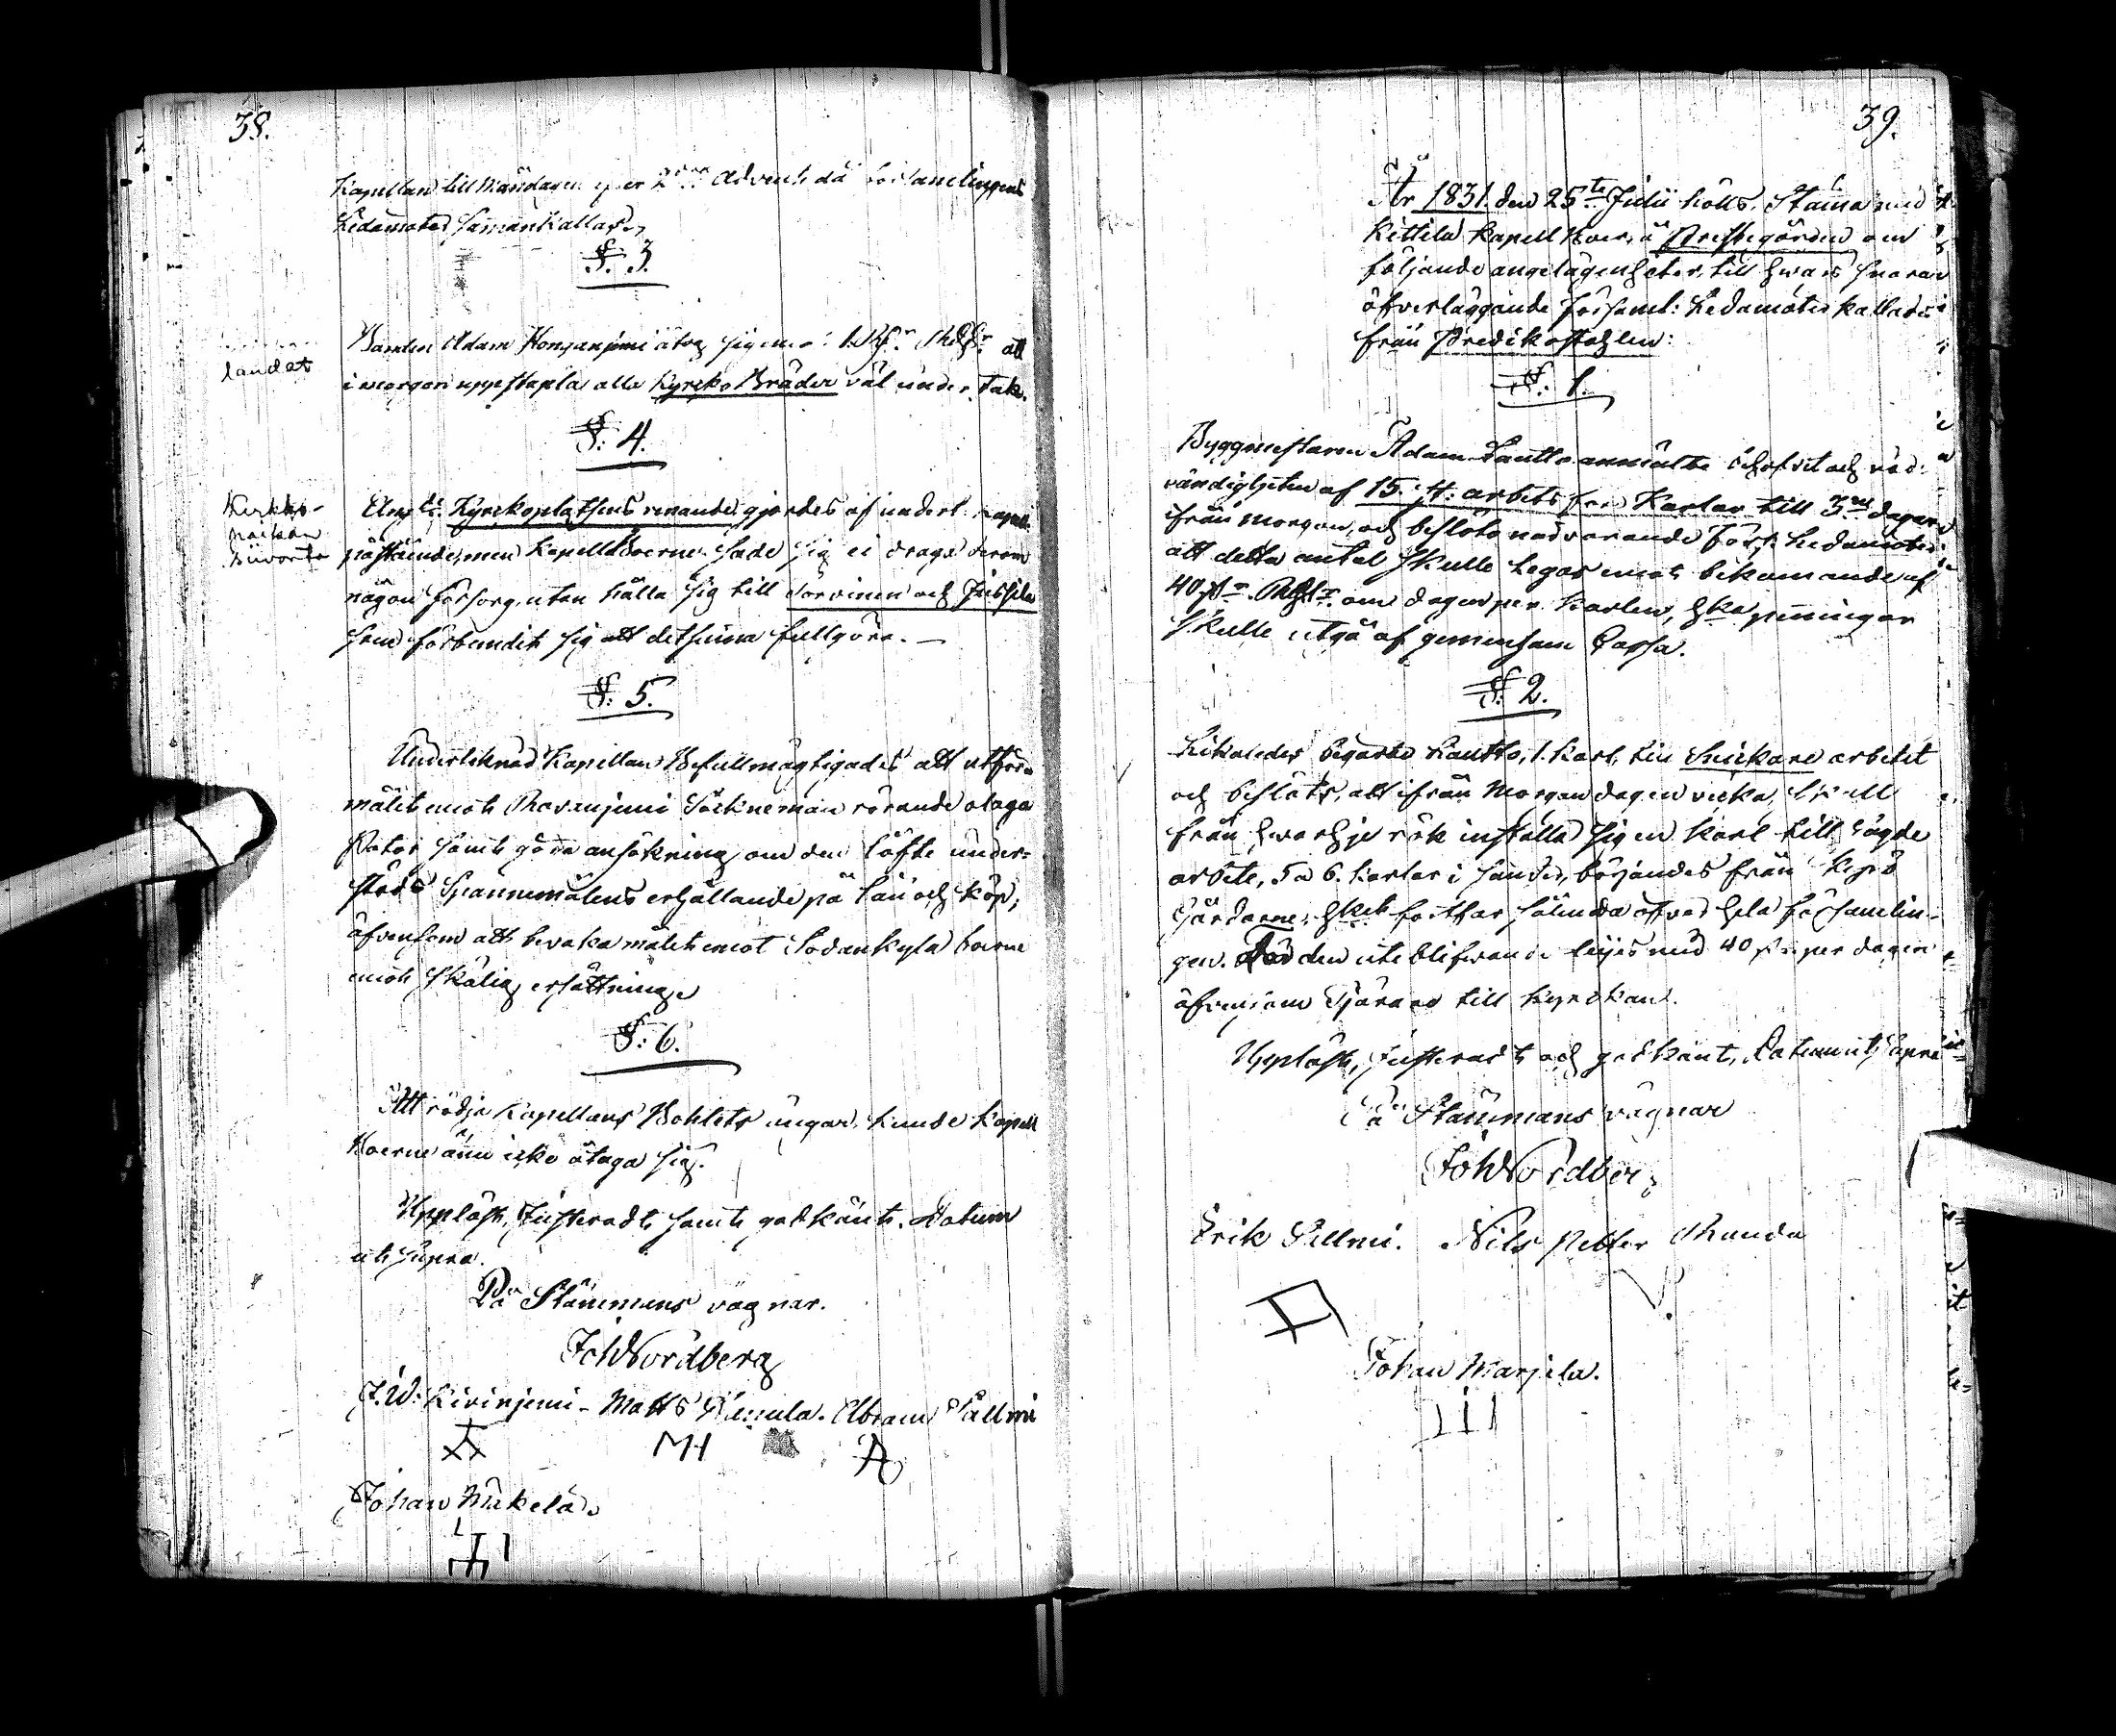 38.
Kapellan till Måndagen efter 2dra Advent då Församlingens
Ledamöter Sammankallas.
§. 3.
landet
Bonden Adam Honganjemi åtog sig emot 1 Rd. att
i morgon uppstapla alla Kyrko Bräder väl under tak.
§: 4.
Kirkko-
paikan
siivonta
Kyrkoplatsens renande gjordes af undert. Kapell.
påstående, men Kapell Boerne sade sig ei draga derom
någon försorg, utan hålla sig till Torvinen och Jussila
som förbundit sig att detsamma fullgöra. —
§: 5.
Underteknad Kapellan Befullmägtigades att utföra
målet emot Rovanjemi Såckneman rörande olaga
Notar samt göra ansökning om den löfte under-
stöds Spannemålens erhållande på lån och köp,
äfvensom att bevaka målet emot Sodankyla boerne
emot skälig ersättning.
§: 6.
Att rödja Kapellans Bohlets ängar, kunde Kapell
Boerne ännu icke åtaga sig.
Uppläst, Justeradt samt godkänt. Datum
ut supra.
På Stämmans vägnar.
Joh Nordberg
J.W: Kivinjemi - Matts . Abram Pallmi
MH
Johan Mäkelä.
39.
År 1831. den 25te Julii hölls Stäma med
Kittilä Kapell Boer, å Prestegården om
följande angelägenheter, till hwars snara
öfverläggande Församl: Ledamöter kallades
från Predikostohlen:
§: 1.
Byggmestaren Adam Lautto anmälte behofvet och nöd-
vändigheten af 15. st: arbetsföre Karlar till 3ne dagar
ifrån morgon, och beslöto nädvarande Förs: Ledamöter
att detta antal skulle legas emot bekomande af
40 s. Rgs. om dagen per Karlen, hka penningar
skulle utgå af gemensam Cassa.
§: 2.
Likaledes begärde Lautto, 1. Karl, till Snickare arbetet
och beslöts, att ifrån Morgondagen vecka, skall
från hwarje rök inställa sig en Karl till sagde
arbete, 5 a 6. Karlar i sänder, börjandes från
Gårdarne, hket fortfar sålunda öfver hela församlin-
gen. den uteblifwande lejes med 40 s. per dagen
äfvensom Tjäran till Kyrckan.
Uppläst, Justeradt och godkänt, Datum ut supra
På Stämmans vägnar
Joh Nordberg
Erik Pallmi. Nils Petter Munda
Johan Marjela.